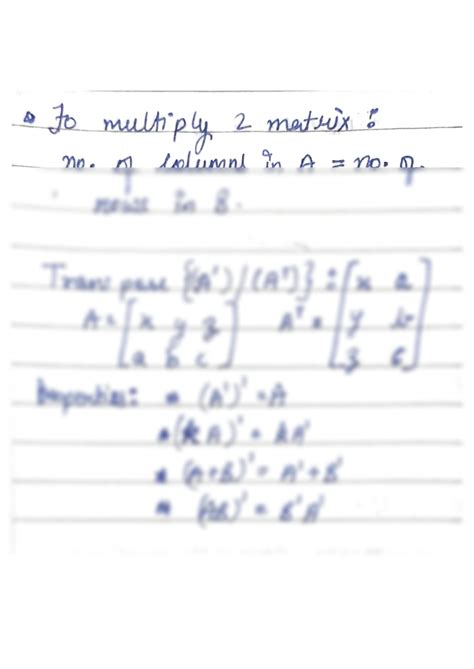 To multiply 2 matrix :
no. of columns in A = no. of
rows in B.
Transpose {(A')/(Aᵀ)} :
A = [x y z
a b c] Aᵀ = [x a
y b
z c]
Properties: * (A')' = A
* (kA)' = kA'
* (A+B)' = A'+B'
* (AB)' = B'A'